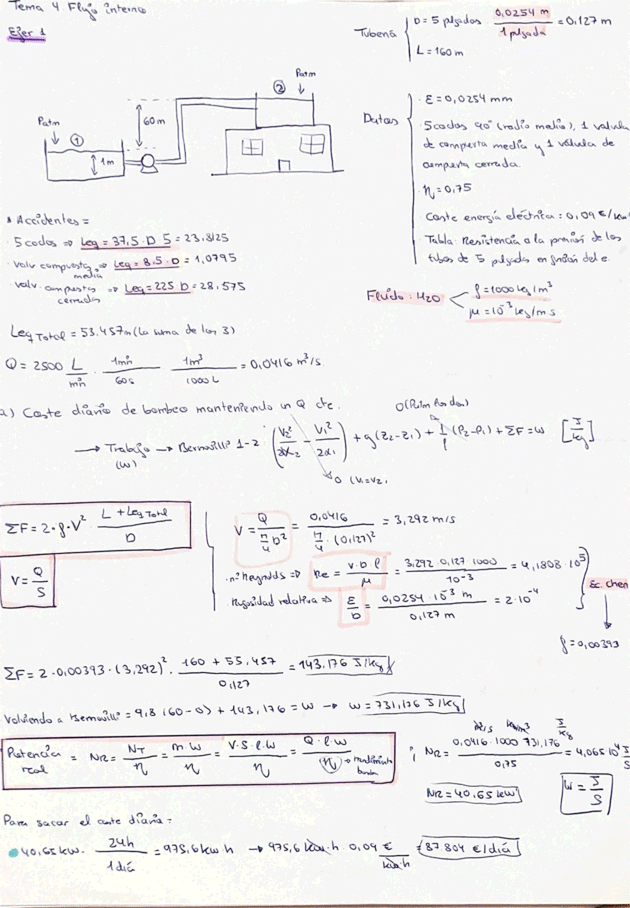 Tema 4 Flujo interno
Ejer 1
Tubería
D = 5 plgadas 0,0254 m / 1 pulgada = 0,127 m
L = 160 m
Patm
①
1m
60 m
②
Patm
Datos
· ε = 0,0254 mm
5 codos 90° (radio medio), 1 valvula
de compuerta media y 1 válvula de
compuerta cerrada.
· η = 0,75
Coste energía eléctrica = 0,09 €/kw
Tabla: Resistencia a la presión de los
tubos de 5 pulgadas en función del e.
Fluido: H2O
ρ = 1000 kg/m³
μ = 10⁻³ kg/m s
* Accidentes =
· 5 codos ⇒ Leq = 37,5 · D 5 = 23,8125
· valv compuerta media ⇒ Leq = 8,5 · D = 1,0795
valv. compuertas cerradas ⇒ Leq = 225 D = 28,575
Leq Total = 53.457m (la suma de los 3)
Q = 2500 L/min · 1min/60s · 1m³/1000L = 0,0416 m³/s.
a) Coste diario de bombeo manteniendo un Q cte.
→ Trabajo (w) → Bernoulli 1-2 (V2²/2α2 − V1²/2α1) + g(z2-z1) + 1/ρ (P2-P1) + ΣF = w [J/kg]
0 (V1=V2)
ΣF = 2·f·V² · (L + Leq Total)/D
V = Q/S
V = Q / (π/4 D²) = 0,0416 / (π/4 · (0,127)²) = 3,292 m/s
· nº Reynolds ⇒ Re = v·D·ρ/μ = 3,292 · 0,127 · 1000 / 10⁻³ = 4,1808 · 10⁵
· Rugosidad relativa ⇒ ε/D = 0,0254 · 10⁻³ m / 0,127 m = 2·10⁻⁴
Ec. chen
f = 0,00393
ΣF = 2 · 0,00393 · (3,292)² · (160 + 55,457)/0,127 = 143,176 J/kg
Volviendo a Bernoulli = 9,8 (60-0) + 143,176 = W → w = 731,176 J/kg
Potencia real = NR = NT/η = m·w/η = V·S·ρ·w/η = Q·ρ·w/η → rendimiento bomba
; NR = 0,0416 · 1000 · 731,176 / 0,75 = 4,065·10⁴ J/s
NR = 40.65 kW
W = J/S
Para sacar el coste diario =
40,65 kw · 24h/1 día = 975,6 kw·h → 975,6 kw·h · 0,09 €/kw·h = 87.804 €/día